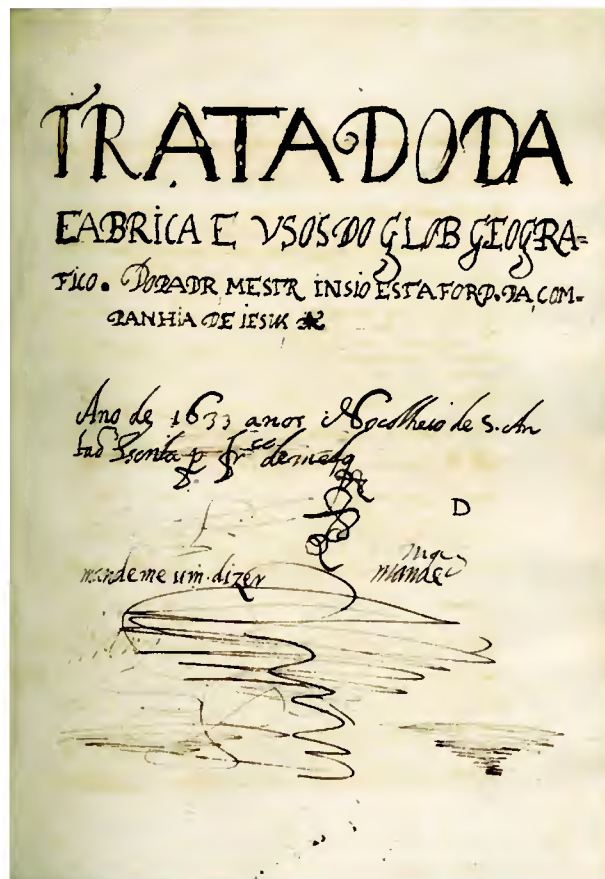 TRATADO DA
FABRICA E VSOS DO GLOB GEOGRA=
FICO. DO PADR MESTR INSIO ESTAFORD. DA COM-
PANHIA DE IESUS
Ano de 1633 anos No colheio de S. An
tao Escrita p fr.co de melo
D
mandeme um dizer
mande